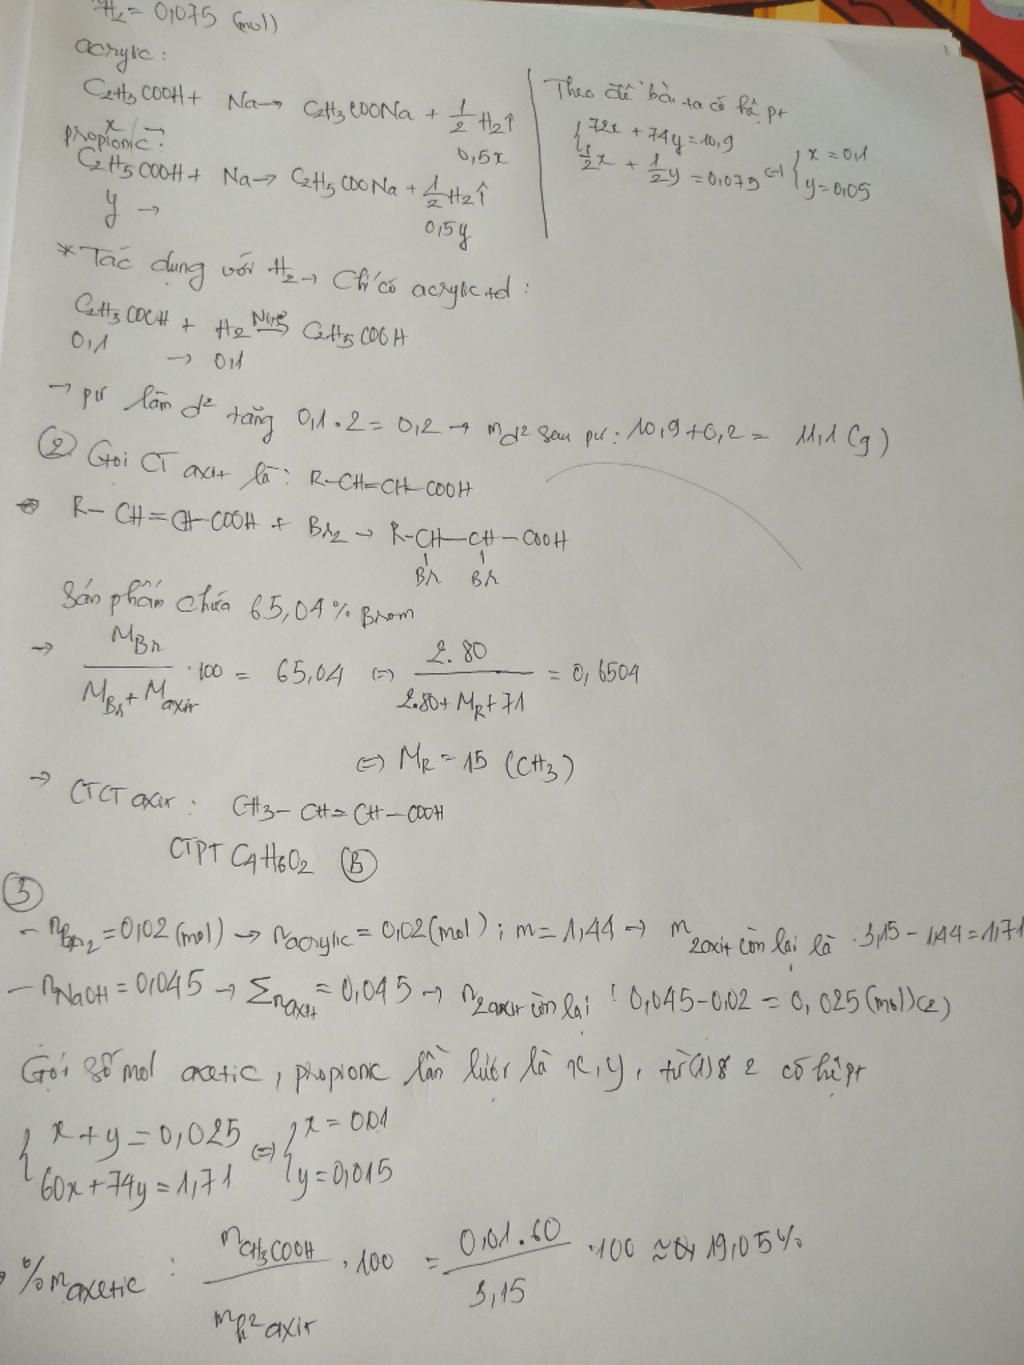 H2 = 0,075 (mol)
acrylic:
C2H3COOH + Na → C2H3COONa + 1/2 H2↑
x → 0,5x
propionic:
C2H5COOH + Na → C2H5COONa + 1/2 H2↑
y → 0,5y
Theo đề bài ta có hệ pt
{72x + 74y = 10,9
1/2x + 1/2y = 0,075 ⇔ {x = 0,1
y = 0,05
* Tác dụng với H2 → Chỉ có acrylic td:
C2H3COOH + H2 Ni,t° → C2H5COOH
0,1 → 0,1
→ pư làm d² tăng 0,1.2 = 0,2 → m d² sau pư: 10,9 + 0,2 = 11,1 (g)
② Gọi CT axit là: R-CH=CH-COOH
R-CH=CH-COOH + Br2 → R-CH-CH-COOH
Br Br
Sản phẩm chứa 65,04% Brom
→ MBr / (MBr + Maxit) .100 = 65,04 ⇔ 2.80 / (2.80 + MR + 71) = 0,6504
⇔ MR = 15 (CH3)
→ CTCT axit: CH3-CH=CH-COOH
CTPT C4H6O2 Ⓑ
③
- nBr2 = 0,02 (mol) → nacrylic = 0,02 (mol); m = 1,44 → m 2axit còn lại là: 3,15 - 1,44 = 1,71
- nNaOH = 0,045 → Σnaxit = 0,045 → n2axit còn lại: 0,045 - 0,02 = 0,025 (mol) (2)
Gọi số mol axetic, propionic lần lượt là x, y, từ (1) & 2 có hệ pt
{x + y = 0,025 ⇔ {x = 0,01
60x + 74y = 1,71 y = 0,015
% maxetic: mCH3COOH / mh² axit .100 = 0,01.60 / 3,15 .100 ≈ 19,05%